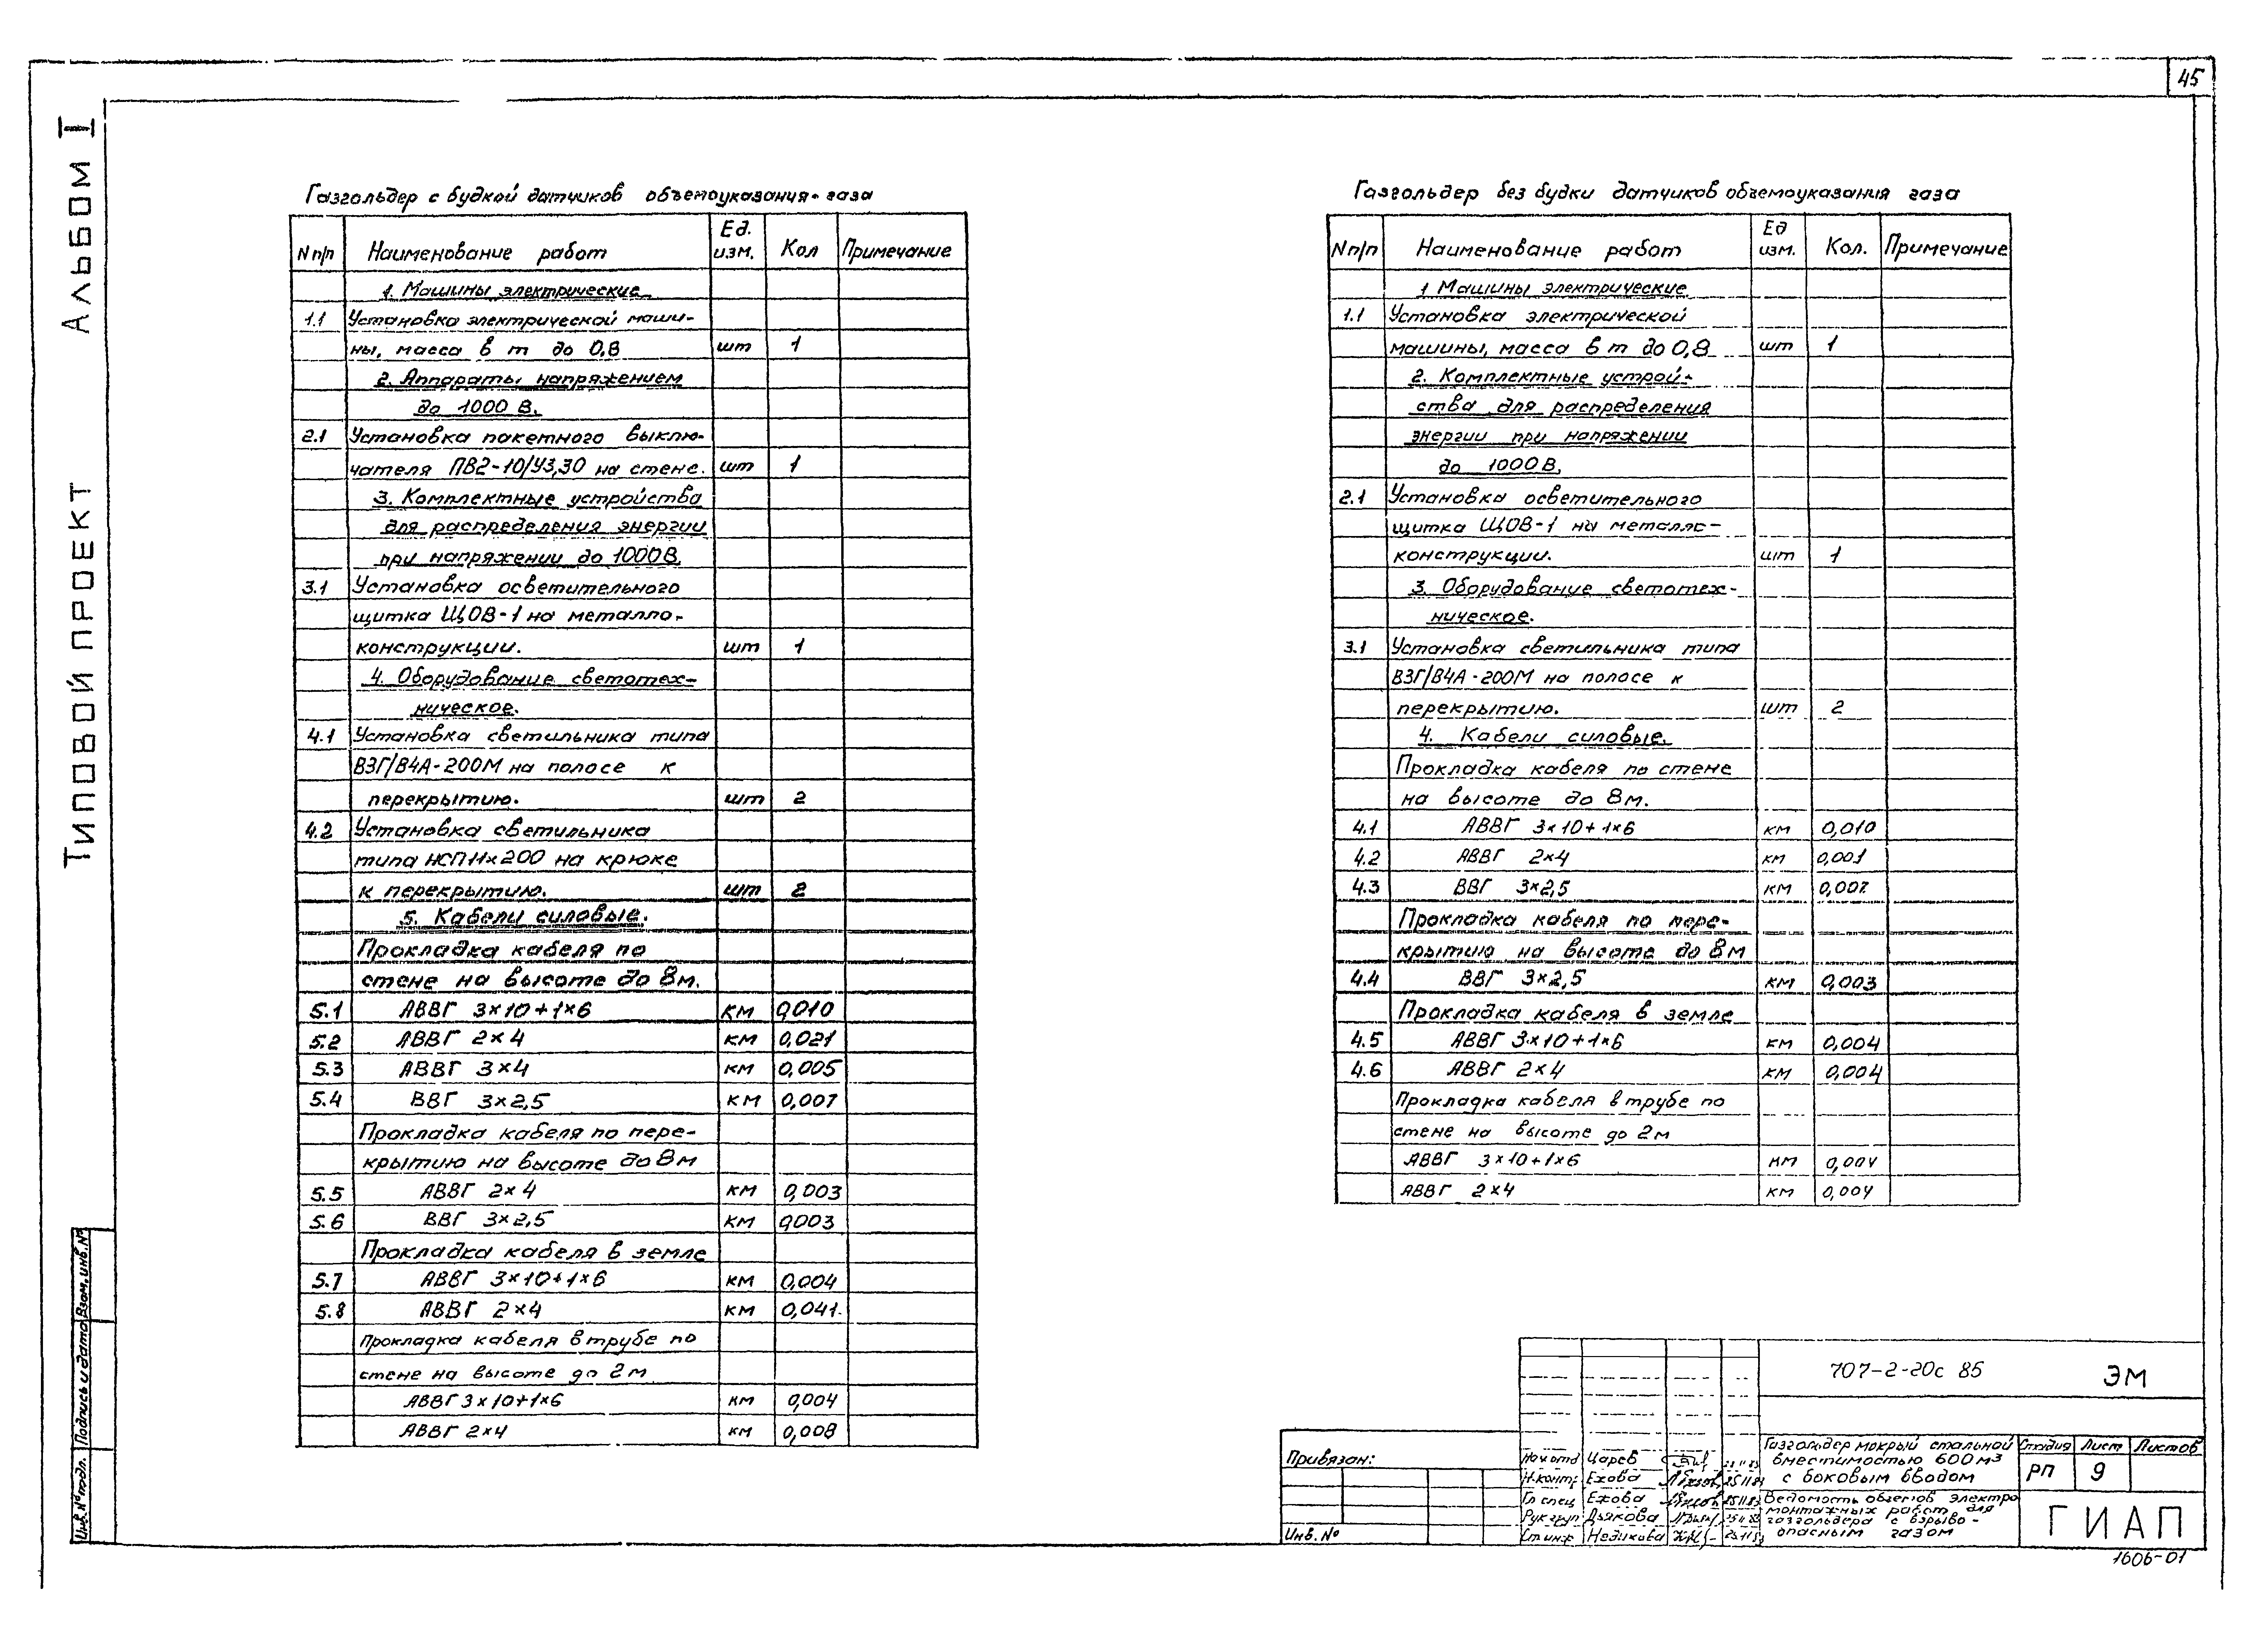 45
Альбом I
Типовой проект
Газгольдер с будкой датчиков объемоуказания газа
N п/п Наименование работ Ед. изм. Кол Примечание
1. Машины электрические
1.1 Установка электрической маши-
ны, масса в т до 0,8 шт 1
2. Аппараты напряжением
до 1000 В.
2.1 Установка пакетного выклю-
чателя ПВ2-10/У3,30 на стене. шт 1
3. Комплектные устройства
для распределения энергии
при напряжении до 1000В.
3.1 Установка осветительного
щитка ЩОВ-1 на металло-
конструкции. шт 1
4. Оборудование светотех-
ническое.
4.1 Установка светильника типа
ВЗГ/В4А-200М на полосе к
перекрытию. шт 2
4.2 Установка светильника
типа НСП11х200 на крюке
к перекрытию. шт 2
5. Кабели силовые.
Прокладка кабеля по
стене на высоте до 8м.
5.1 АВВГ 3×10+1×6 км 0,010
5.2 АВВГ 2×4 км 0,021
5.3 АВВГ 3×4 км 0,005
5.4 ВВГ 3×2,5 км 0,007
Прокладка кабеля по пере-
крытию на высоте до 8м
5.5 АВВГ 2×4 км 0,003
5.6 ВВГ 3×2,5 км 0,003
Прокладка кабеля в земле
5.7 АВВГ 3×10+1×6 км 0,004
5.8 АВВГ 2×4 км 0,041
Прокладка кабеля в трубе по
стене на высоте до 2м
АВВГ 3×10+1×6 км 0,004
АВВГ 2×4 км 0,008
Газгольдер без будки датчиков объемоуказания газа
N п/п Наименование работ Ед изм. Кол. Примечание
1 Машины электрические
1.1 Установка электрической
машины, масса в т до 0,8 шт 1
2. Комплектные устрой-
ства для распределения
энергии при напряжении
до 1000В.
2.1 Установка осветительного
щитка ЩОВ-1 на металло-
конструкции. шт 1
3. Оборудование светотех-
ническое.
3.1 Установка светильника типа
ВЗГ/В4А-200М на полосе к
перекрытию. шт 2
4. Кабели силовые.
Прокладка кабеля по стене
на высоте до 8м.
4.1 АВВГ 3×10+1×6 км 0,010
4.2 АВВГ 2×4 км 0,001
4.3 ВВГ 3×2,5 км 0,007
Прокладка кабеля по пере-
крытию на высоте до 8м
4.4 ВВГ 3×2,5 км 0,003
Прокладка кабеля в земле
4.5 АВВГ 3×10+1×6 км 0,004
4.6 АВВГ 2×4 км 0,004
Прокладка кабеля в трубе по
стене на высоте до 2м
АВВГ 3×10+1×6 км 0,004
АВВГ 2×4 км 0,004
Взам. инв. №
Подпись и дата
Инв. № подл.
Привязан:
Инв. №
707-2-20с 85 ЭМ
Нач отд Царев
Н.контр Ехова
Гл спец Ехова
Рук груп Дьякова
Ст инж Недикова
Газгольдер мокрый стальной
вместимостью 600 м3
с боковым вводом
Стадия Лист Листов
РП 9
Ведомость объемов электро
монтажных работ для
газгольдера с взрыво-
опасным газом
ГИАП
1606-01